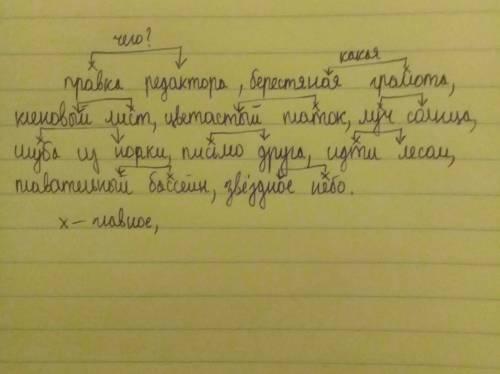 чего? какая
правка редактора, берестяная грамота,
кленовый лист, цветастый платок, луч солнца,
шуба из норки, письмо друга, идти лесом,
плавательный бассейн, звёздное небо.
х – главное,